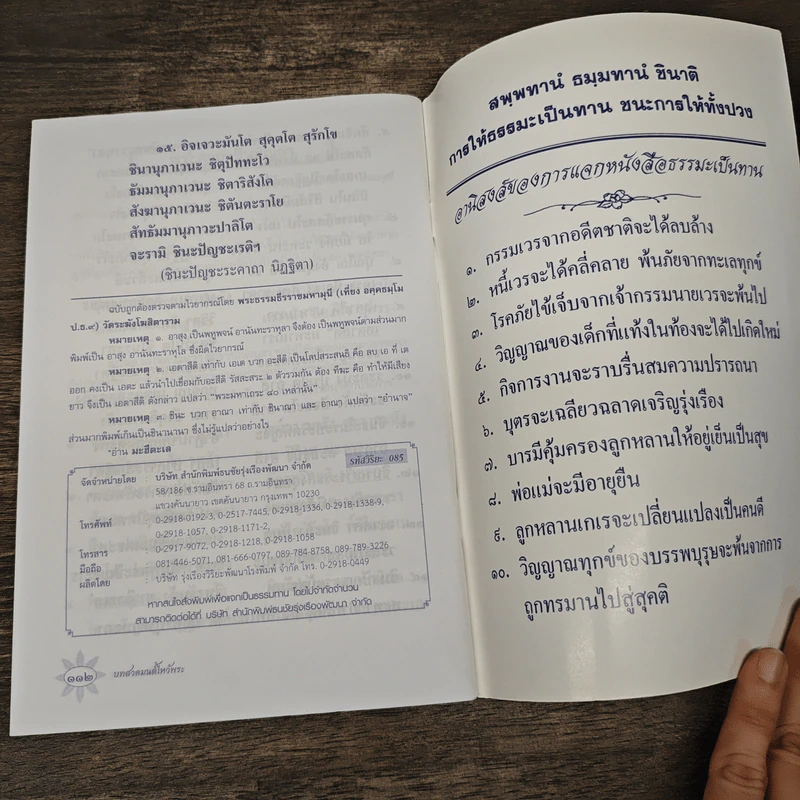 ๑๕. อิจเจวะมันโต สุคุตโต สุรักโข
ชินานุภาเวนะ ชิตุปัททะโว
ธัมมานุภาเวนะ ชิตาริสังโค
สังฆานุภาเวนะ ชิตันตะราโย
สัทธัมมานุภาวะปาลิโต
จะรามิ ชินะปัญชะเรติฯ
(ชินะปัญชะระคาถา นิฏฐิตา)
ฉบับถูกต้องตรวจตามไวยากรณ์โดย พระธรรมธีรราชมหามุนี (เที่ยง อคฺคธมฺโม
ป.ธ.๙) วัดระฆังโฆสิตาราม
หมายเหตุ ๑. อาสุง เป็นพหูพจน์ อานันทะราหุลา จึงต้อง เป็นพหูพจน์ตามส่วนมาก
พิมพ์เป็น อาสุง อานันทะราหุโล ซึ่งผิดไวยากรณ์
หมายเหตุ ๒. เอตาสีติ เท่ากับ เอเต บวก อะสีติ เป็นโลปสระสนธิ คือ ลบ เอ ที่ เต
ออก คงเป็น เอตะ แล้วนำไปเชื่อมกับอะสีติ รัสสะสระ ๒ ตัวรวมกัน ต้อง ทีฆะ คือ ทำให้มีเสียง
ยาว จึงเป็น เอตาสีติ ดังกล่าว แปลว่า "พระมหาเถระ ๘๐ เหล่านั้น"
หมายเหตุ ๓. ชินะ บวก อาณา เท่ากับ ชินาณา และ อาณา แปลว่า "อำนาจ"
ส่วนมากพิมพ์เกินเป็นชินานานา ซึ่งไม่รู้แปลว่าอย่างไร
*อ่าน มะฮีตะเล
รหัสวิริยะ 085
จัดจำหน่ายโดย : บริษัท สำนักพิมพ์ธนชัยรุ่งเรืองพัฒนา จำกัด
58/186 ซ.รามอินทรา 68 ถ.รามอินทรา
แขวงคันนายาว เขตคันนายาว กรุงเทพฯ 10230
โทรศัพท์ : 0-2918-0192-3, 0-2517-7445, 0-2918-1336, 0-2918-1338-9,
0-2918-1057, 0-2918-1171-2,
โทรสาร : 0-2917-9072, 0-2918-1218, 0-2918-1058
มือถือ : 081-446-5071, 081-666-0797, 089-784-8758, 089-789-3226
ผลิตโดย : บริษัท รุ่งเรืองวิริยะพัฒนาโรงพิมพ์ จำกัด โทร. 0-2918-0449
หากสนใจสั่งพิมพ์เพื่อแจกเป็นธรรมทาน โดยไม่จำกัดจำนวน
สามารถติดต่อได้ที่ บริษัท สำนักพิมพ์ธนชัยรุ่งเรืองพัฒนา จำกัด
๑๑๒ บทสวดมนต์ไหว้พระ
สพฺพทานํ ธมฺมทานํ ชินาติ
การให้ธรรมะเป็นทาน ชนะการให้ทั้งปวง
อานิสงส์ของการแจกหนังสือธรรมะเป็นทาน
๑. กรรมเวรจากอดีตชาติจะได้ลบล้าง
๒. หนี้เวรจะได้คลี่คลาย พ้นภัยจากทะเลทุกข์
๓. โรคภัยไข้เจ็บจากเจ้ากรรมนายเวรจะพ้นไป
๔. วิญญาณของเด็กที่แท้งในท้องจะได้ไปเกิดใหม่
๕. กิจการงานจะราบรื่นสมความปรารถนา
๖. บุตรจะเฉลียวฉลาดเจริญรุ่งเรือง
๗. บารมีคุ้มครองลูกหลานให้อยู่เย็นเป็นสุข
๘. พ่อแม่จะมีอายุยืน
๙. ลูกหลานเกเรจะเปลี่ยนแปลงเป็นคนดี
๑๐. วิญญาณทุกข์ของบรรพบุรุษจะพ้นจากการ
ถูกทรมานไปสู่สุคติ